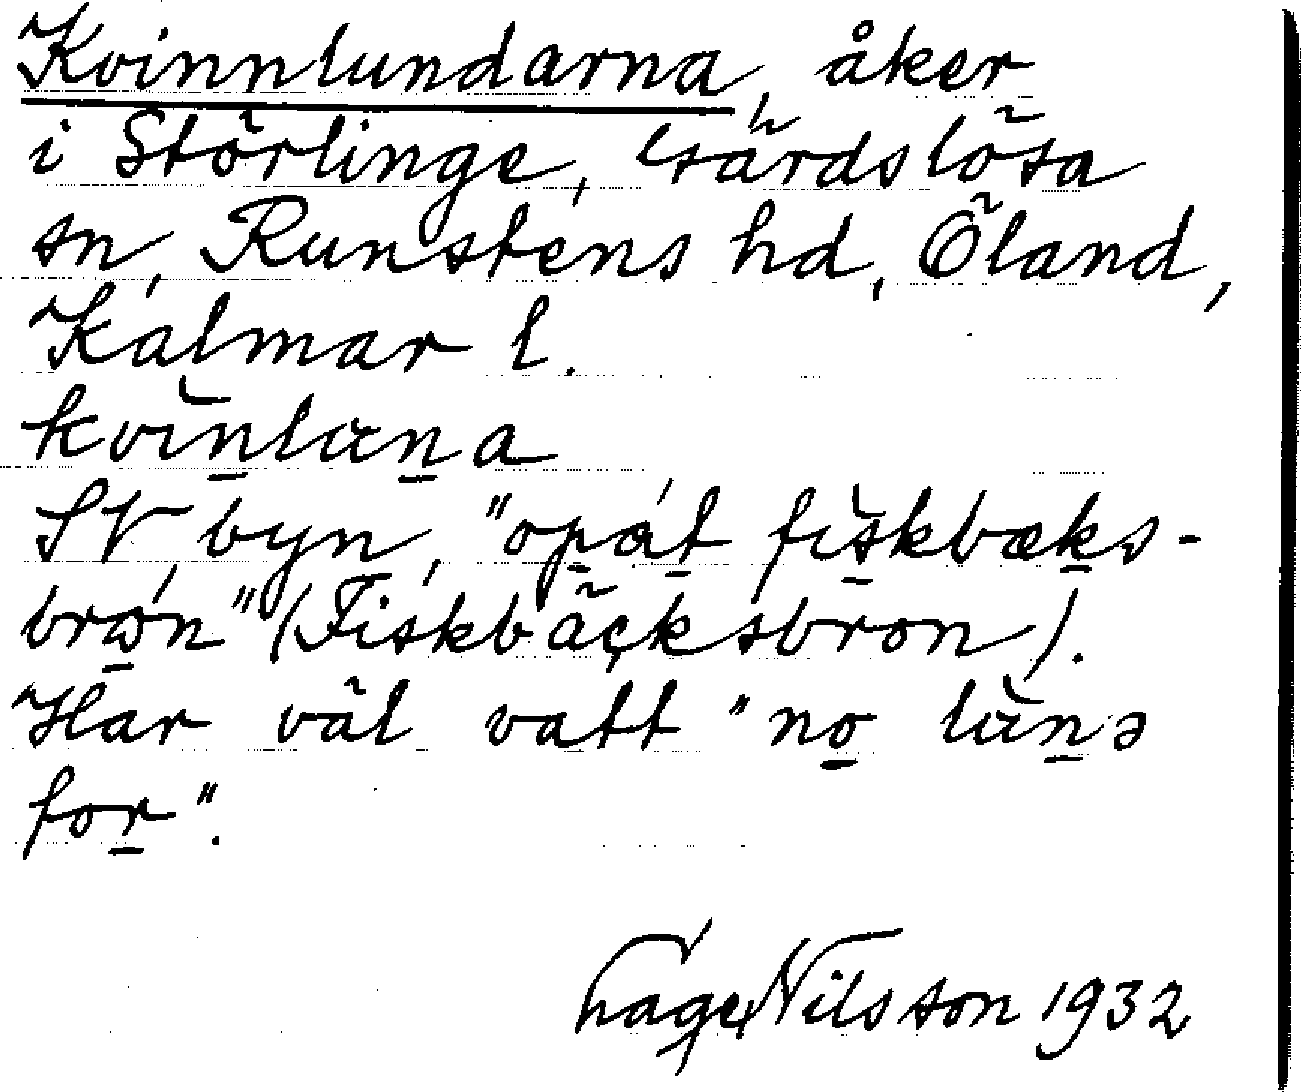 Kvinnlundarna, åker
i Störlinge, Gärdslösa
sn, Runstens hd, Öland,
Kalmar l.
kvìn̠lɯn̠a
SV byn, "op̠át̠ fìs̠kbæk̠s-
brώ̠n" (Fiskbäcksbron).
Har väl vatt "no̠ lɯ̀n̠ə
for̠".
Hage Nilsson 1932